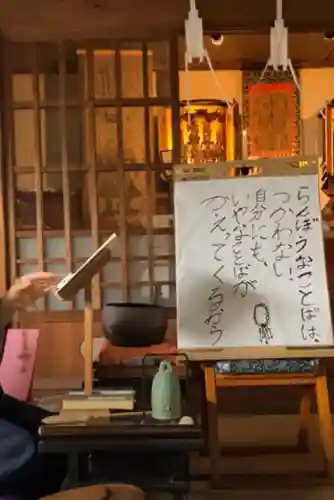 らんぼうなことばは、
つかわない。
自分にも、
いやなことばが
かえってくるから